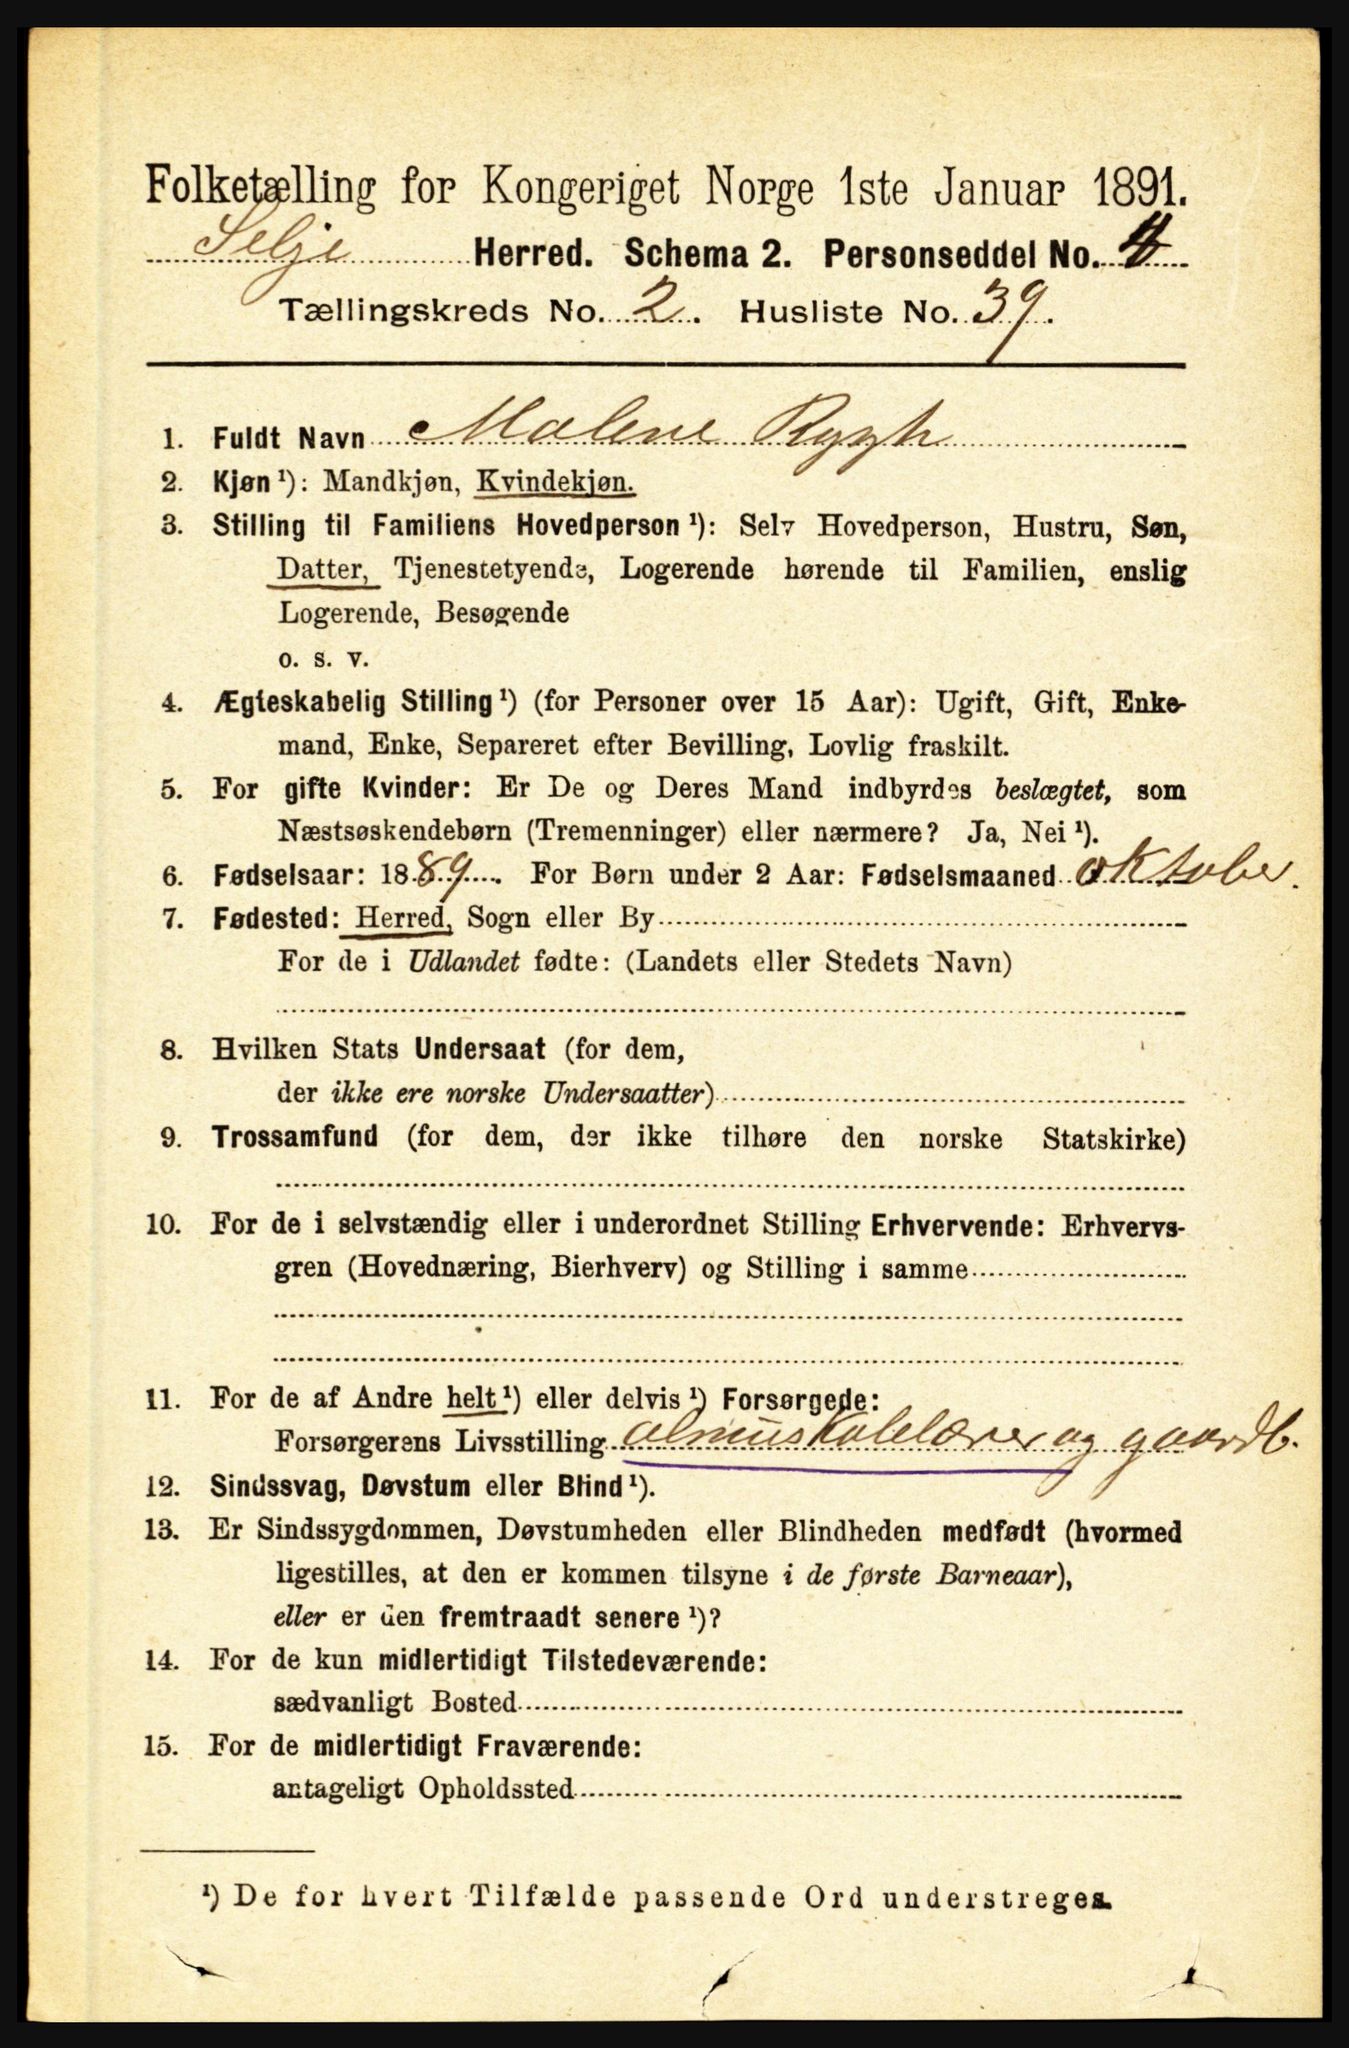 Folketælling for Kongeriget Norge 1ste Januar 1891.
Selje Herred. Schema 2. Personseddel No. 4
Tællingskreds No. 2. Husliste No. 39.
1. Fuldt Navn Malene Rygh
2. Kjøn¹): Mandkjøn, Kvindekjøn.
3. Stilling til Familiens Hovedperson¹): Selv Hovedperson, Hustru, Søn,
Datter, Tjenestetyende, Logerende hørende til Familien, enslig
Logerende, Besøgende
o. s. v.
4. Ægteskabelig Stilling¹) (for Personer over 15 Aar): Ugift, Gift, Enke-
mand, Enke, Separeret efter Bevilling, Lovlig fraskilt.
5. For gifte Kvinder: Er De og Deres Mand indbyrdes beslægtet, som
Næstsøskendebørn (Tremenninger) eller nærmere? Ja, Nei¹).
6. Fødselsaar: 1889. For Børn under 2 Aar: Fødselsmaaned oktober.
7. Fødested: Herred, Sogn eller By
For de i Udlandet fødte: (Landets eller Stedets Navn)
8. Hvilken Stats Undersaat (for dem,
der ikke ere norske Undersaatter)
9. Trossamfund (for dem, der ikke tilhøre den norske Statskirke)
10. For de i selvstændig eller i underordnet Stilling Erhvervende: Erhvervs-
gren (Hovednæring, Bierhverv) og Stilling i samme
11. For de af Andre helt¹) eller delvis¹) Forsørgede:
Forsørgerens Livsstilling almuskolelærer og gaardb.
12. Sindssvag, Døvstum eller Blind¹).
13. Er Sindssygdommen, Døvstumheden eller Blindheden medfødt (hvormed
ligestilles, at den er kommen tilsyne i de første Barneaar),
eller er den fremtraadt senere¹)?
14. For de kun midlertidigt Tilstedeværende:
sædvanligt Bosted
15. For de midlertidigt Fraværende:
antageligt Opholdssted
¹) De for hvert Tilfælde passende Ord understreges.